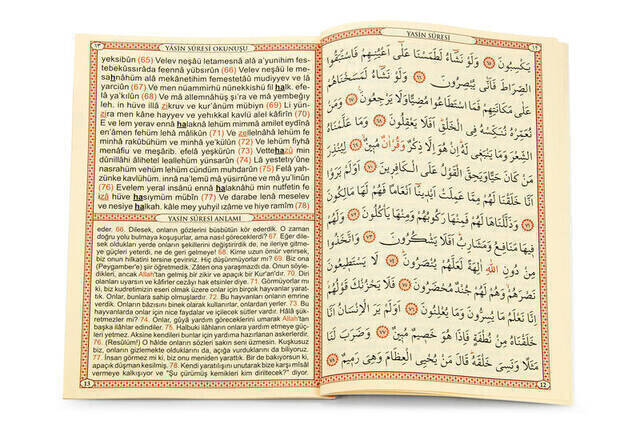 ١٢
YASİN SÛRESİ
يَكْسِبُونَ ﴿٦٥﴾ وَلَوْ نَشَٓاءُ لَطَمَسْنَا عَلٰٓى اَعْيُنِهِمْ فَاسْتَبَقُوا
الصِّرَاطَ فَاَنّٰى يُبْصِرُونَ ﴿٦٦﴾ وَلَوْ نَشَٓاءُ لَمَسَخْنَاهُمْ
عَلٰى مَكَانَتِهِمْ فَمَا اسْتَطَاعُوا مُضِيًّا وَلَا يَرْجِعُونَ ﴿٦٧﴾ وَمَنْ
نُعَمِّرْهُ نُنَكِّسْهُ فِي الْخَلْقِ اَفَلَا يَعْقِلُونَ ﴿٦٨﴾ وَمَا عَلَّمْنَاهُ
الشِّعْرَ وَمَا يَنْبَغ۪ي لَهُ اِنْ هُوَ اِلَّا ذِكْرٌ وَقُرْاٰنٌ مُب۪ينٌ ﴿٦٩﴾ لِيُنْذِرَ
مَنْ كَانَ حَيًّا وَيَحِقَّ الْقَوْلُ عَلَى الْكَافِر۪ينَ ﴿٧٠﴾ اَوَلَمْ يَرَوْا
اَنَّا خَلَقْنَا لَهُمْ مِمَّا عَمِلَتْ اَيْد۪ينَٓا اَنْعَامًا فَهُمْ لَهَا مَالِكُونَ
﴿٧١﴾ وَذَلَّلْنَاهَا لَهُمْ فَمِنْهَا رَكُوبُهُمْ وَمِنْهَا يَأْكُلُونَ ﴿٧٢﴾ وَلَهُمْ
ف۪يهَا مَنَافِعُ وَمَشَارِبُ اَفَلَا يَشْكُرُونَ ﴿٧٣﴾ وَاتَّخَذُوا
مِنْ دُونِ اللّٰهِ اٰلِهَةً لَعَلَّهُمْ يُنْصَرُونَ ﴿٧٤﴾ لَا يَسْتَط۪يعُونَ
نَصْرَهُمْ وَهُمْ لَهُمْ جُنْدٌ مُحْضَرُونَ ﴿٧٥﴾ فَلَا يَحْزُنْكَ قَوْلُهُمْ
اِنَّا نَعْلَمُ مَا يُسِرُّونَ وَمَا يُعْلِنُونَ ﴿٧٦﴾ اَوَلَمْ يَرَ الْاِنْسَانُ اَنَّا
خَلَقْنَاهُ مِنْ نُطْفَةٍ فَاِذَا هُوَ خَص۪يمٌ مُب۪ينٌ ﴿٧٧﴾ وَضَرَبَ لَنَا
مَثَلًا وَنَسِيَ خَلْقَهُ قَالَ مَنْ يُحْيِي الْعِظَامَ وَهِيَ رَم۪يمٌ ﴿٧٨﴾
12
١٣
YÂSİN SÛRESİ OKUNUŞU
yeksibûn (65) Velev neşâü letamesnâ alâ a'yunihim fes-
tebekûssırâda feennâ yübsırûn (66) Velev neşâü le me-
sahnâhüm alâ mekânetihim femestetâû mudiyyev ve lâ
yarciûn (67) Ve men nüammirhü nünekkishü fil halk. efe-
lâ ya'kılûn (68) Ve mâ allemnâhüş şı'ra ve mâ yembeğıy
leh. in hüve illâ zikruv ve kur'ânüm mübiyn (69) Li yün-
zira men kâne hayyev ve yehıkkal kavlü alel kâfirîn (70)
E ve lem yerav ennâ halaknâ lehüm mimmâ amilet eydînâ
en'âmen fehüm lehâ mâlikûn (71) Ve zellelnâhâ lehüm fe
minhâ rakûbühüm ve minhâ ye'külûn (72) Ve lehüm fîyhâ
menâfiu ve meşârib. efelâ yeşkürûn (73) Vettehazû min
dûnillâhi âlihetel leallehüm yünsarûn (74) Lâ yestetıy'ûne
nasrahüm vehüm lehüm cündüm muhdarûn (75) Felâ yah-
zünke kavlühüm. innâ na'lemü mâ yüsirrûne ve mâ yu'linûn
(76) Evelem yeral insânü ennâ halaknâhü min nutfetin fe
izâ hüve hasıymüm mübîn (77) Ve darabe lenâ meselev
ve nesiye halkah. kâle mey yuhyil ızâme ve hiye ramîm (78)
YASİN SÛRESİ ANLAMI
eder. 66. Dilesek, onların gözlerini büsbütün kör ederdik. O zaman
doğru yolu bulmaya koşuşurlar, ama nasıl göreceklerdi? 67. Eğer dile-
sek oldukları yerde onların şekillerini değiştirirdik de, ne ileriye gitme-
ye güçleri yeterdi, ne de geri gelmeye! 68. Kime uzun ömür verirsek,
biz onun hilkatini tersine çeviririz. Hiç düşünmüyorlar mı? 69. Biz ona
(Peygamber'e) şiir öğretmedik. Zâten ona yaraşmazdı da. Onun söyle-
dikleri, ancak Allah'tan gelmiş bir zikir ve apaçık bir Kur'an'dır. 70. Diri
olanları uyarsın ve kâfirler cezâyı hak etsinler diye. 71. Görmüyorlar mı
ki, biz kudretimizin eseri olmak üzere onlar için birçok hayvanlar yarat-
tık. Onlar, bunlara sahip olmuşlardır. 72. Bu hayvanları onların emrine
verdik. Onların bâzısını binek olarak kullanırlar, onlardan yerler. 73. Bu
hayvanlarda onlar için nice faydalar ve içilecek sütler vardır. Hâlâ şük-
retmezler mi? 74. Onlar, güyâ yardım göreceklerini umarak Allah'tan
başka ilâhlar edindiler. 75. Halbuki ilâhların onlara yardım etmeye güç-
leri yetmez. Aksine kendileri bunlar için yardıma hazırlanan askerlerdir.
76. (Resûlüm!) O hâlde onların sözleri sakın seni üzmesin. Kuşkusuz
biz, onların gizlemekte olduklarını da, açığa vurduklarını da biliyoruz.
77. İnsan görmez mi ki, biz onu meniden yarattık. Bir de bakıyorsun ki,
apaçık düşman kesilmiş. 78. Kendi yaratılışını unutarak bize karşı misâl
vermeye kalkışıyor ve "Şu çürümüş kemikleri kim diriltecek?" diyor.
13